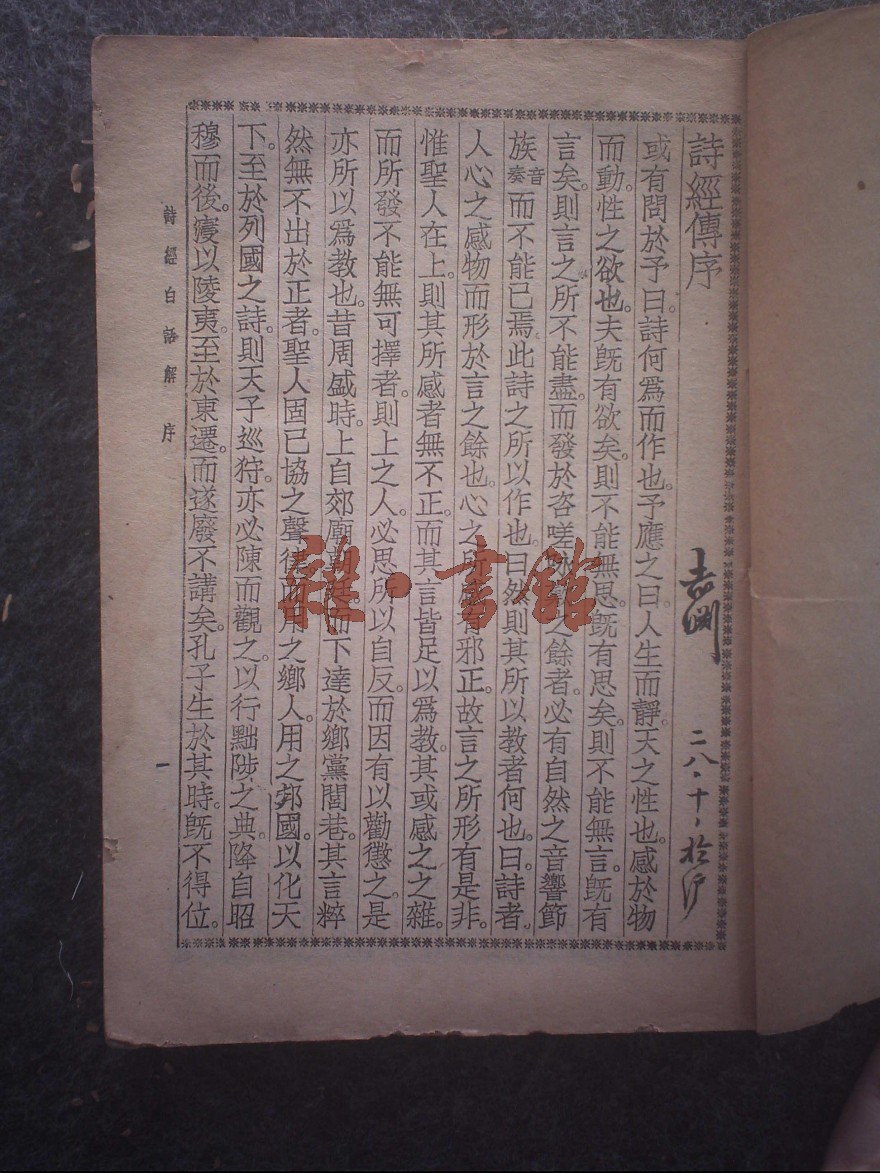 詩經傳序
二八·十、於沪
或有問於予曰。詩何爲而作也。予應之曰。人生而靜。天之性也。感於物
而動。性之欲也。夫旣有欲矣。則不能無思。旣有思矣。則不能無言。旣有
言矣。則言之所不能盡。而發於咨嗟之餘者。必有自然之音響節
族音奏而不能已焉。此詩之所以作也。曰然則其所以教者何也。曰詩者。
人心之感物而形於言之餘也。心之所有邪正。故言之所形有是非。
惟聖人在上。則其所感者無不正。而其言皆足以爲教。其或感之之雜。
而所發不能無可擇者。則上之人。必思所以自反。而因有以勸懲之。是
亦所以爲教也。昔周盛時。上自郊廟而下達於鄉黨閭巷。其言粹
然無不出於正者。聖人固已協之聲律而用之鄉人。用之邦國。以化天
下。至於列國之詩。則天子巡狩。亦必陳而觀之。以行黜陟之典。降自昭
穆而後。寖以陵夷。至於東遷。而遂廢不講矣。孔子生於其時。旣不得位。
詩經白話解 序
一
雜·書館